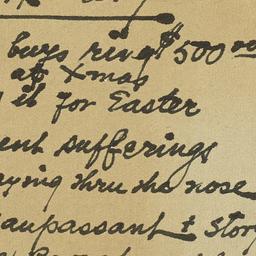 buys ring $500 00
at Xmas
it for Easter
ent sufferings
aying thru the nose
aupassant + Story